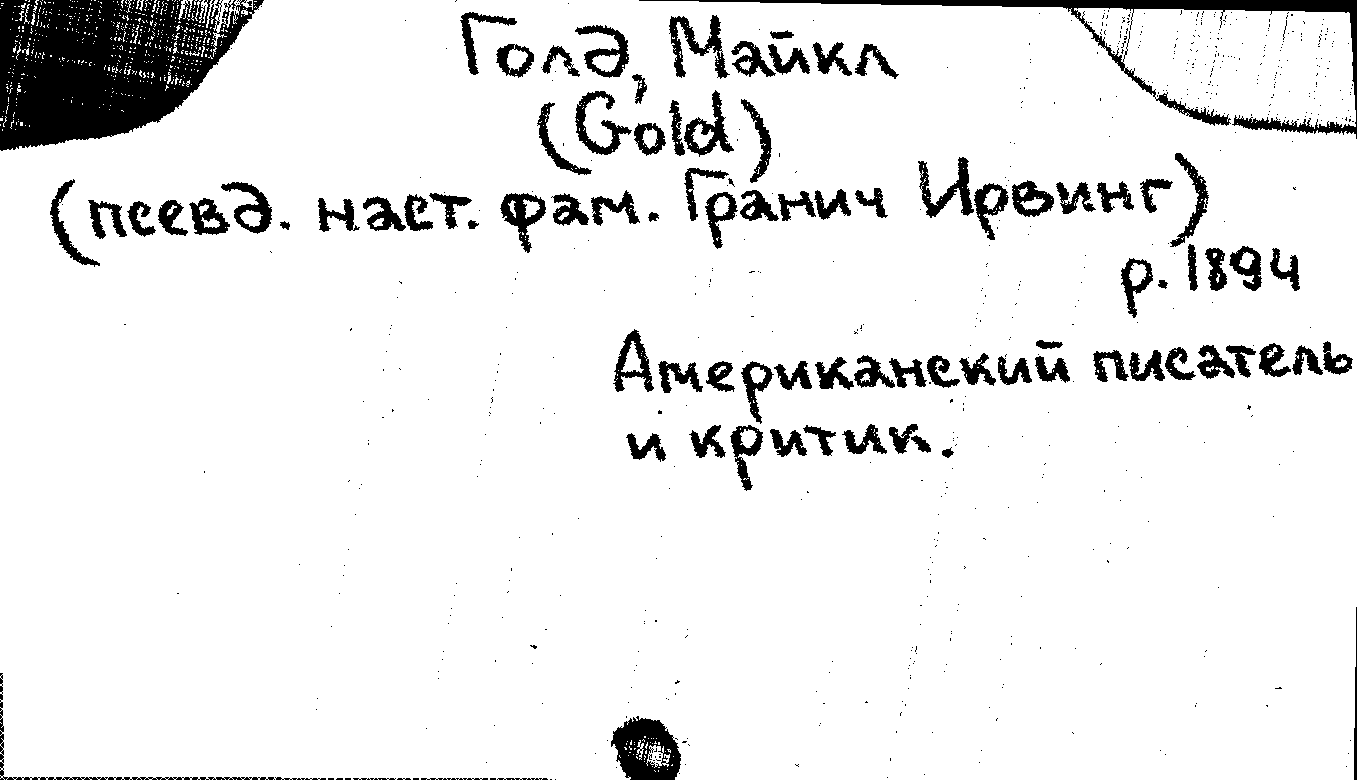 Голд, Майкл
(Gold)
(псевд. наст. фам. Гранич Ирвинг)
р. 1894
Американский писатель
и критик.